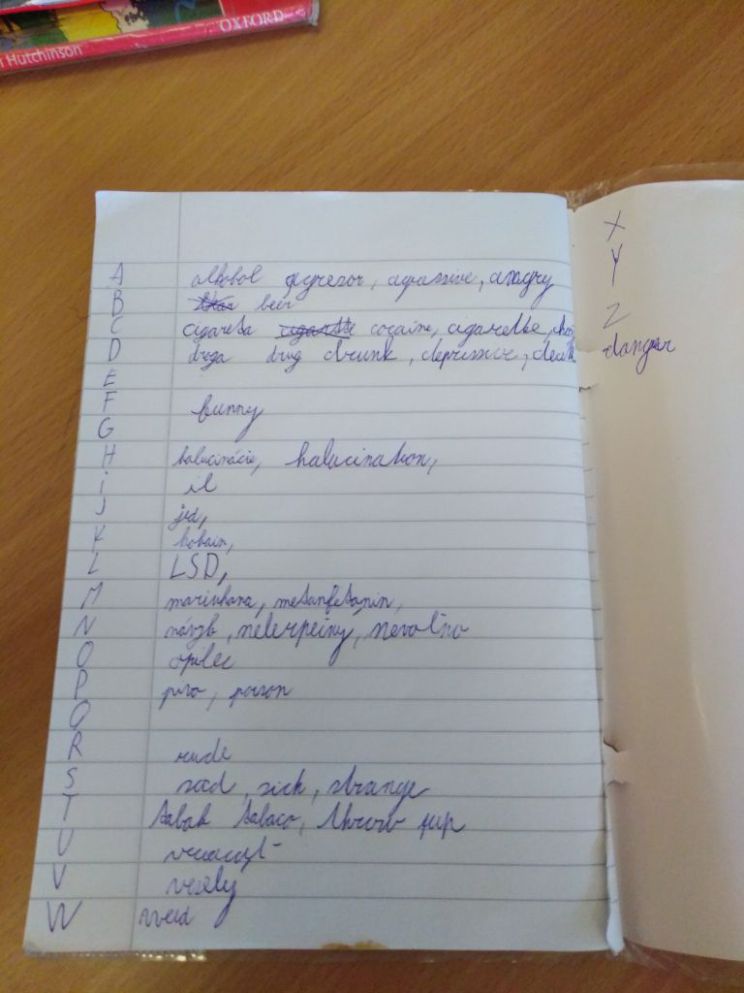 OXFORD
Hutchinson
A alkohol agresor, agrassive, anagry
B beer
C cigareta cigarette cocaine, cigarette,
D droga drug drunk, depressive, death
E
F funny
G
H halucinácie, halucination,
i il
J jed,
K kokain,
L LSD,
M marinhana, metanfetamin,
N návyk, netrpeiný, nevoľno
O opilec
P pivo, poison
Q
R rude
S sad, sick, strange
T tabak tabaco, throw up
U
V vesely
W weed
X
Y
Z
danger